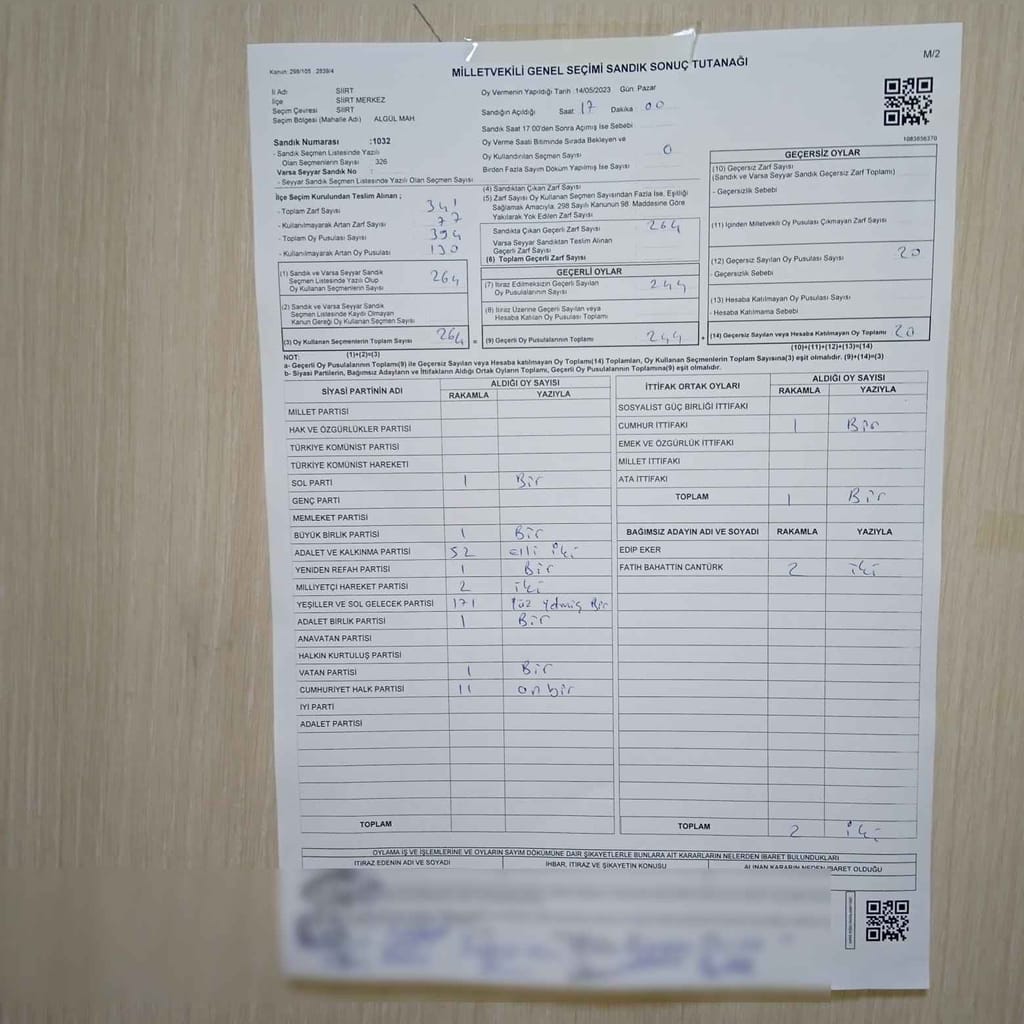 Kanun: 298/105 . 2839/4
M/2
MİLLETVEKİLİ GENEL SEÇİMİ SANDIK SONUÇ TUTANAĞI
İl Adı SİİRT
İlçe SİİRT MERKEZ
Seçim Çevresi SİİRT
Seçim Bölgesi (Mahalle Adı) ALGÜL MAH
Sandık Numarası :1032
- Sandık Seçmen Listesinde Yazılı
Olan Seçmenlerin Sayısı 326
Varsa Seyyar Sandık No :
- Seyyar Sandık Seçmen Listesinde Yazılı Olan Seçmen Sayısı
Oy Vermenin Yapıldığı Tarih :14/05/2023 Gün: Pazar
Sandığın Açıldığı Saat 17 Dakika 00
Sandık Saat 17:00'den Sonra Açmış İse Sebebi
Oy Verme Saati Bitiminde Sırada Bekleyen ve
Oy Kullandırılan Seçmen Sayısı 0
Birden Fazla Sayım Döküm Yapılmış İse Sayısı
1083656370
İlçe Seçim Kurulundan Teslim Alınan ;
- Toplam Zarf Sayısı 341
- Kullanılmayarak Artan Zarf Sayısı 77
- Toplam Oy Pusulası Sayısı 394
- Kullanılmayarak Artan Oy Pusulası 130
(1) Sandık ve Varsa Seyyar Sandık
Seçmen Listesinde Yazılı Olup
Oy Kullanan Seçmenlerin Sayısı 264
(2) Sandık ve Varsa Seyyar Sandık
Seçmen Listesinde Kaydı Olmayan
Kanun Gereği Oy Kullanan Seçmen Sayısı
(3) Oy Kullanan Seçmenlerin Toplam Sayısı 264 =
(1)+(2)=(3)
(4) Sandıktan Çıkan Zarf Sayısı
(5) Zarf Sayısı Oy Kullanan Seçmen Sayısından Fazla İse, Eşitliği
Sağlamak Amacıyla, 298 Sayılı Kanunun 98. Maddesine Göre
Yakılarak Yok Edilen Zarf Sayısı
Sandıkta Çıkan Geçerli Zarf Sayısı 264
Varsa Seyyar Sandıktan Teslim Alınan
Geçerli Zarf Sayısı
(6) Toplam Geçerli Zarf Sayısı
GEÇERLİ OYLAR
(7) İtiraz Edilmeksizin Geçerli Sayılan
Oy Pusulalarının Sayısı 244
(8) İtiraz Üzerine Geçerli Sayılan veya
Hesaba Katılan Oy Pusulası Toplamı
(9) Geçerli Oy Pusulalarının Toplamı 244 +
GEÇERSİZ OYLAR
(10) Geçersiz Zarf Sayısı
(Sandık ve Varsa Seyyar Sandık Geçersiz Zarf Toplamı)
- Geçersizlik Sebebi
(11) İçinden Milletvekili Oy Pusulası Çıkmayan Zarf Sayısı
(12) Geçersiz Sayılan Oy Pusulası Sayısı 20
- Geçersizlik Sebebi
(13) Hesaba Katılmayan Oy Pusulası Sayısı
- Hesaba Katılmama Sebebi
(14) Geçersiz Sayılan veya Hesaba Katılmayan Oy Toplamı 20
(10)+(11)+(12)+(13)=(14)
NOT:
a- Geçerli Oy Pusulalarının Toplamı(9) ile Geçersiz Sayılan veya Hesaba katılmayan Oy Toplamı(14) Toplamları, Oy Kullanan Seçmenlerin Toplam Sayısına(3) eşit olmalıdır. (9)+(14)=(3)
b- Siyasi Partilerin, Bağımsız Adayların ve İttifakların Aldığı Ortak Oyların Toplamı, Geçerli Oy Pusulalarının Toplamına(9) eşit olmalıdır.
SİYASİ PARTİNİN ADI ALDIĞI OY SAYISI
RAKAMLA YAZIYLA
MİLLET PARTİSİ
HAK VE ÖZGÜRLÜKLER PARTİSİ
TÜRKİYE KOMÜNİST PARTİSİ
TÜRKİYE KOMÜNİST HAREKETİ
SOL PARTİ 1 Bir
GENÇ PARTİ
MEMLEKET PARTİSİ
BÜYÜK BİRLİK PARTİSİ 1 Bir
ADALET VE KALKINMA PARTİSİ 52 elli iki
YENİDEN REFAH PARTİSİ 1 Bir
MİLLİYETÇİ HAREKET PARTİSİ 2 iki
YEŞİLLER VE SOL GELECEK PARTİSİ 171 Yüz Yetmiş Bir
ADALET BİRLİK PARTİSİ 1 Bir
ANAVATAN PARTİSİ
HALKIN KURTULUŞ PARTİSİ
VATAN PARTİSİ 1 Bir
CUMHURİYET HALK PARTİSİ 11 onbir
İYİ PARTİ
ADALET PARTİSİ
TOPLAM
İTTİFAK ORTAK OYLARI ALDIĞI OY SAYISI
RAKAMLA YAZIYLA
SOSYALİST GÜÇ BİRLİĞİ İTTİFAKI
CUMHUR İTTİFAKI 1 Bir
EMEK VE ÖZGÜRLÜK İTTİFAKI
MİLLET İTTİFAKI
ATA İTTİFAKI
TOPLAM 1 Bir
BAĞIMSIZ ADAYIN ADI VE SOYADI RAKAMLA YAZIYLA
EDİP EKER
FATİH BAHATTİN CANTÜRK 2 iki
TOPLAM 2 iki
OYLAMA İŞ VE İŞLEMLERİNE VE OYLARIN SAYIM DÖKÜMÜNE DAİR ŞİKAYETLERLE BUNLARA AİT KARARLARIN NELERDEN İBARET BULUNDUKLARI
İTİRAZ EDENİN ADI VE SOYADI İHBAR, İTİRAZ VE ŞİKAYETİN KONUSU ALINAN KARARIN NEDEN İBARET OLDUĞU